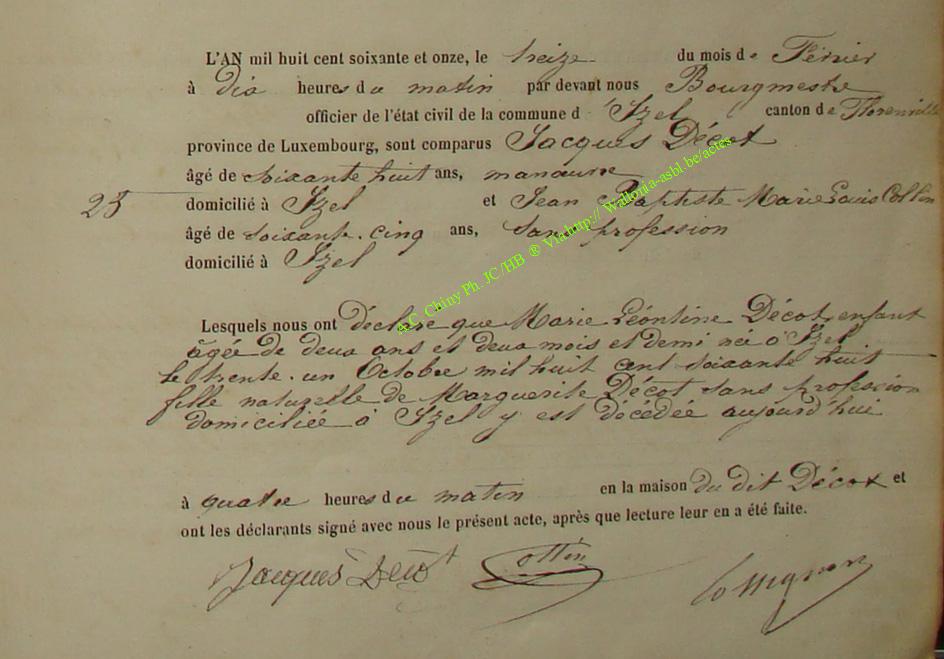 L'AN mil huit cent soixante et onze, le treize du mois de Février
à dix heures du matin par devant nous Bourgmestre
officier de l'état civil de la commune d'Izel canton de Florenville
province de Luxembourg, sont comparus Jacques Décot
âgé de soixante huit ans, manœuvre
25 domicilié à Izel et Jean Baptiste Marie Louis Collin
âgé de soixante-cinq ans, sans profession
domicilié à Izel
&C. Chiny Ph. JC/HB ® Via http:// Wallonia-asbl.be/actes
Lesquels nous ont déclaré que Marie Léontine Décot, enfant
âgée de deux ans et deux mois et demi née à Izel
le trente-un Octobre mil huit cent soixante huit
fille naturelle de Marguerite Décot sans profession
domiciliée à Izel y est décédée aujourd'hui
à quatre heures du matin en la maison du dit Décot et
ont les déclarants signé avec nous le présent acte, après que lecture leur en a été faite.
Jacques Decot Collin